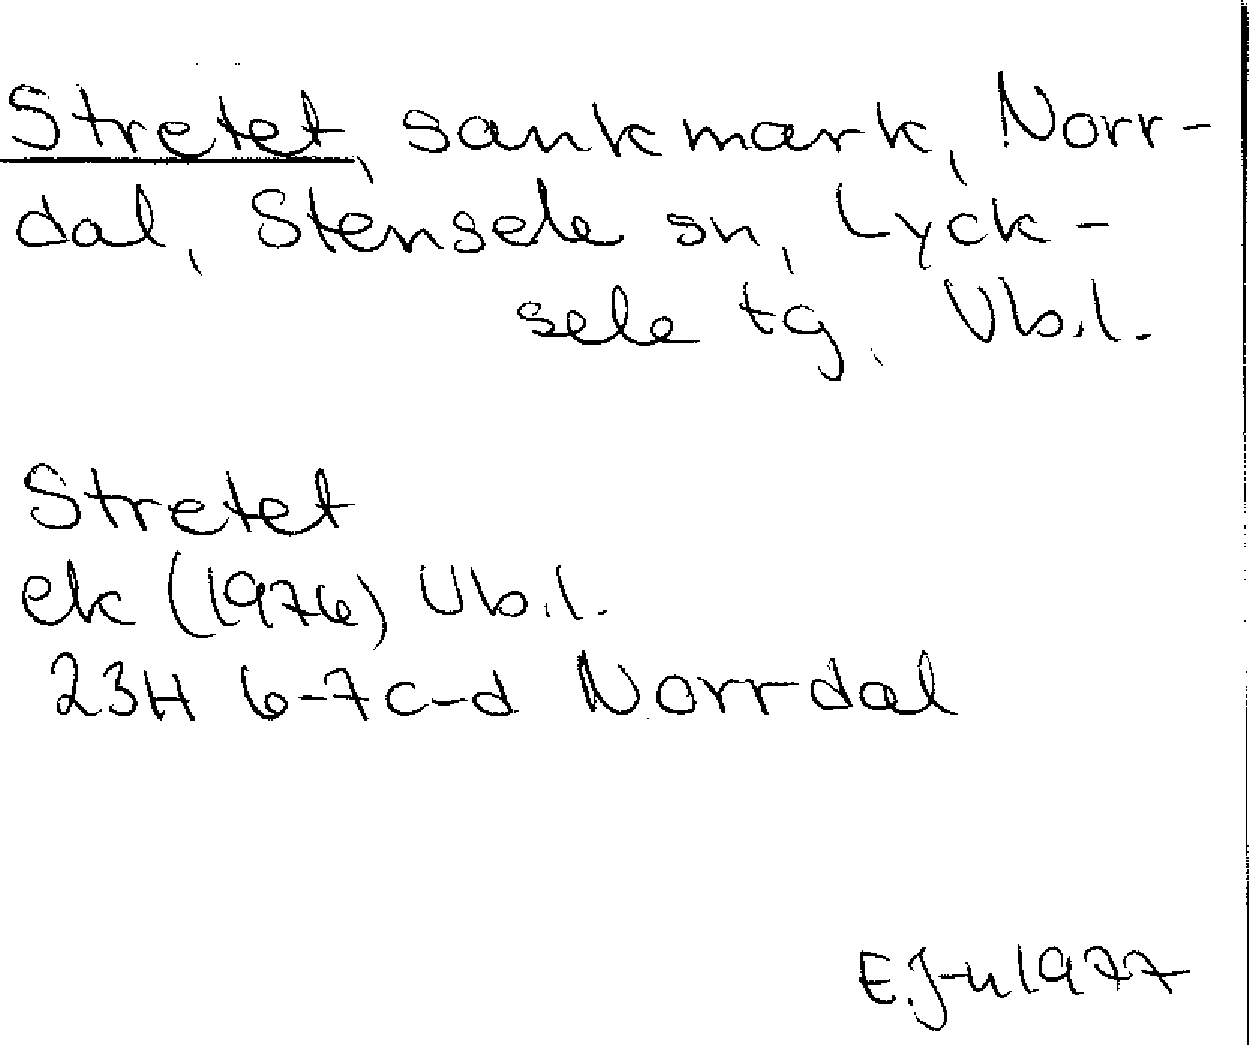 Stretet, sankmark, Norr-
dal, Stensele sn, Lyck-
sele tg, Vb.l.
Stretet
ek (1976) Vb.l.
23H 6-7c-d Norrdal
E.J-n 1977